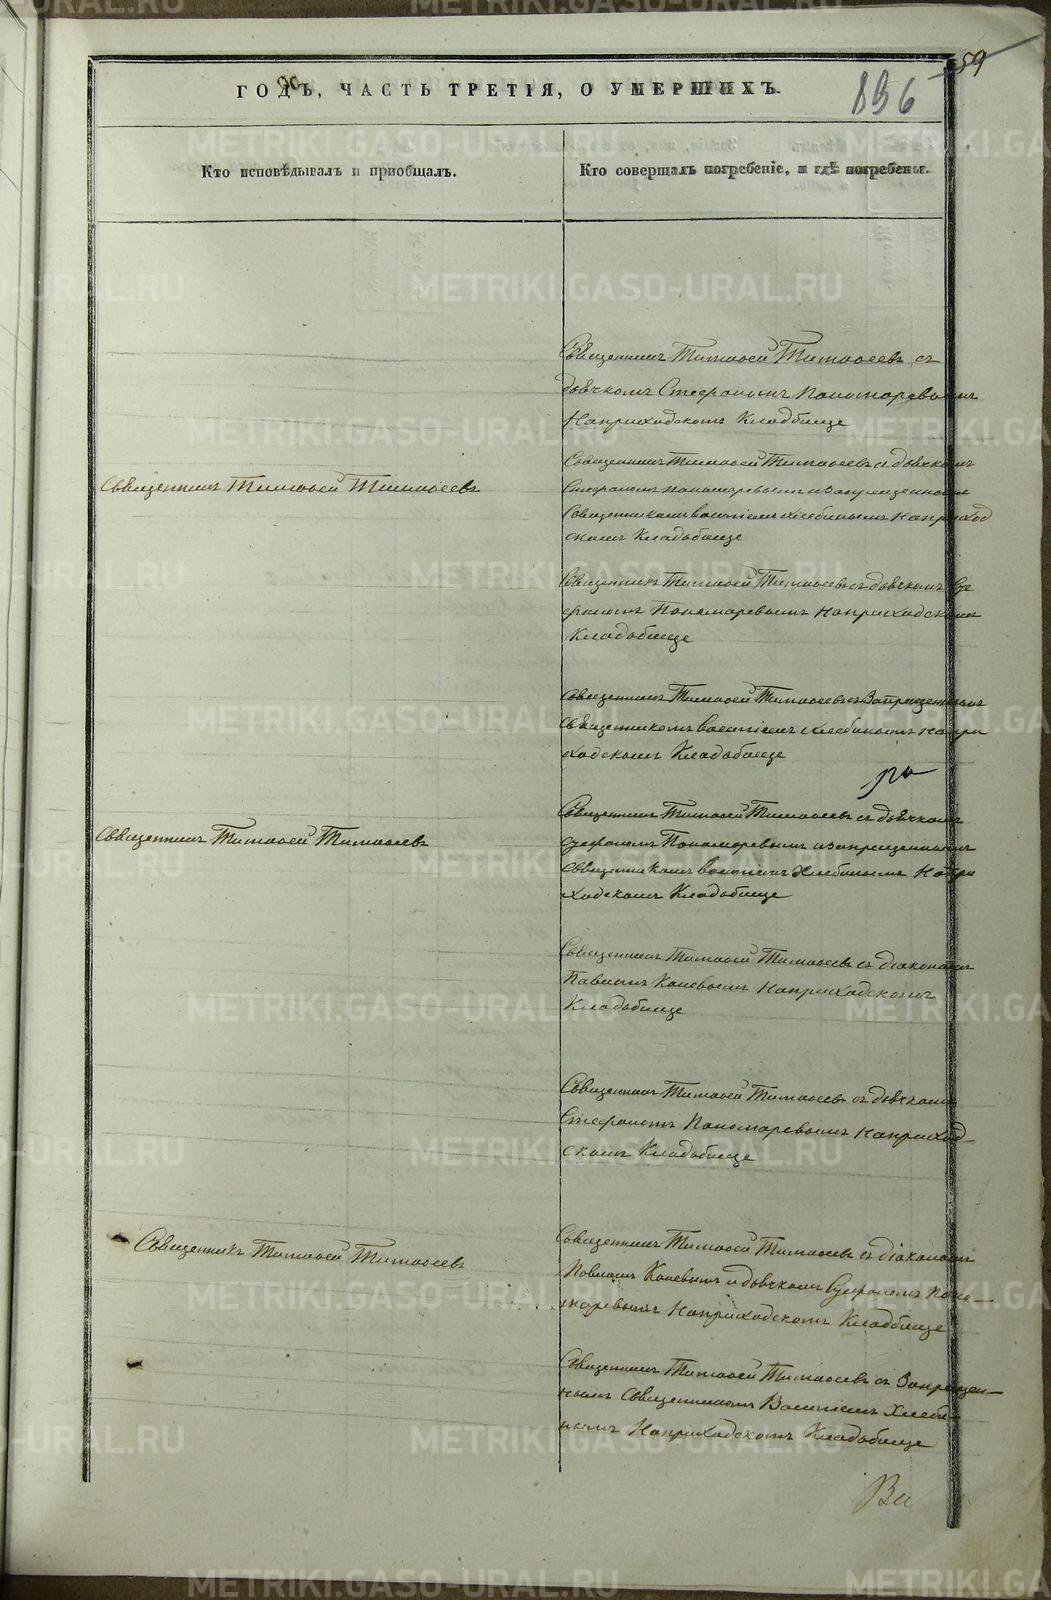 59
896
ГОДЪ, ЧАСТЬ ТРЕТІЯ, О УМЕРШИХЪ.
Кто исповѣдывалъ и пріобщалъ.
Кто совершалъ погребеніе, и гдѣ погребены.
Священникъ Тимоѳей Тимоѳеевъ съ
дьячкомъ Стефаномъ Пономаревымъ
На приходскомъ Кладбище
Священникъ Тимоѳей Тимоѳеевъ
Священникъ Тимоѳей Тимоѳеевъ с дьячкомъ
Стефаномъ Пономаревымъ и Запрещеннымъ
Священникомъ Василіемъ Хлебинымъ На приход
скомъ Кладьбище
Священникъ Тимоѳей Тимоѳеевъ съ дьячкомъ Сте
фаномъ Пономаревымъ На приходскомъ
Кладьбище
Священникъ Тимоѳей Тимоѳеевъ съ Запрещеннымъ
Священникомъ Василіемъ Хлебинымъ На при
ходскомъ Кладьбище
Священникъ Тимоѳей Тимоѳеевъ
Священникъ Тимоѳей Тимоѳеевъ съ дьячкомъ
Стефаномъ Пономаревымъ и запрещеннымъ
Священникомъ Василіемъ Хлебинымъ На при
ходскомъ Кладьбище
Священникъ Тимоѳей Тимоѳеевъ съ діакономъ
Павломъ Коневымъ На приходскомъ
Кладьбище
Священникъ Тимоѳей Тимоѳеевъ съ дьячкомъ
Стефаномъ Пономаревымъ На приход-
скомъ Кладьбище
Священникъ Тимоѳей Тимоѳеевъ
Священникъ Тимоѳей Тимоѳеевъ съ діакономъ
Павломъ Коневымъ и дьячкомъ Стефаномъ Поно-
маревымъ На приходскомъ Кладбище
Священникъ Тимоѳей Тимоѳеевъ съ Запрещен-
нымъ Священникомъ Василіемъ Хлеби-
нымъ На приходскомъ Кладьбище
METRIKI.GASO-URAL.RU